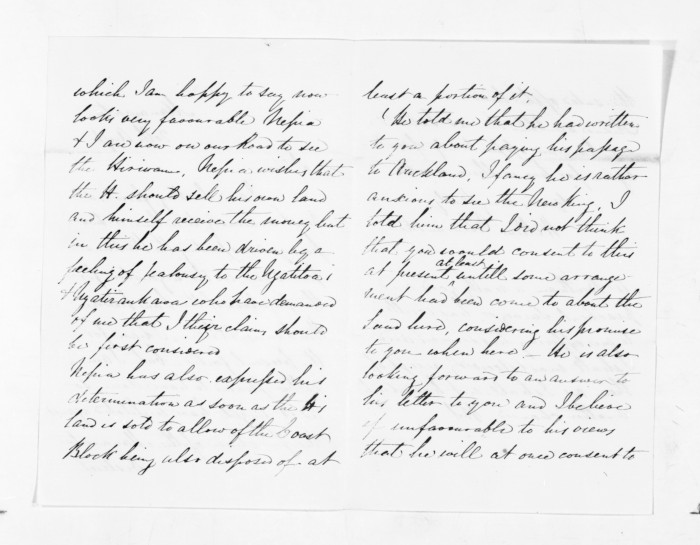 which I am happy to say now
looks very favourable Nepia
& I are now on our road to see
the Hiriwanu, Nepia wishes that
the H. should sell his own land
and himself receive the money but
in this he has been driven by a
feeling of jealousy to the Ngatitoa's
& Ngatiraukawas who have demanded
of me that I their claim, should
be first considered
Nepia has also expressed his
determination as soon as the H's
land is sold to allow of the Coast
Block being also disposed of at
least a portion of it.
He told me that he had written
to you about paying his passage
to Auckland, I fancy he is rather
anxious to see the New King, I
told him that I did not think
that you would consent to this
at least
at present untill some arrange
ment had been come to about the
land here, considering his promise
to you when here – He is also
looking forward to an answer to
his letter to you and I believe
if unfavourable to his views
that he will at once consent to